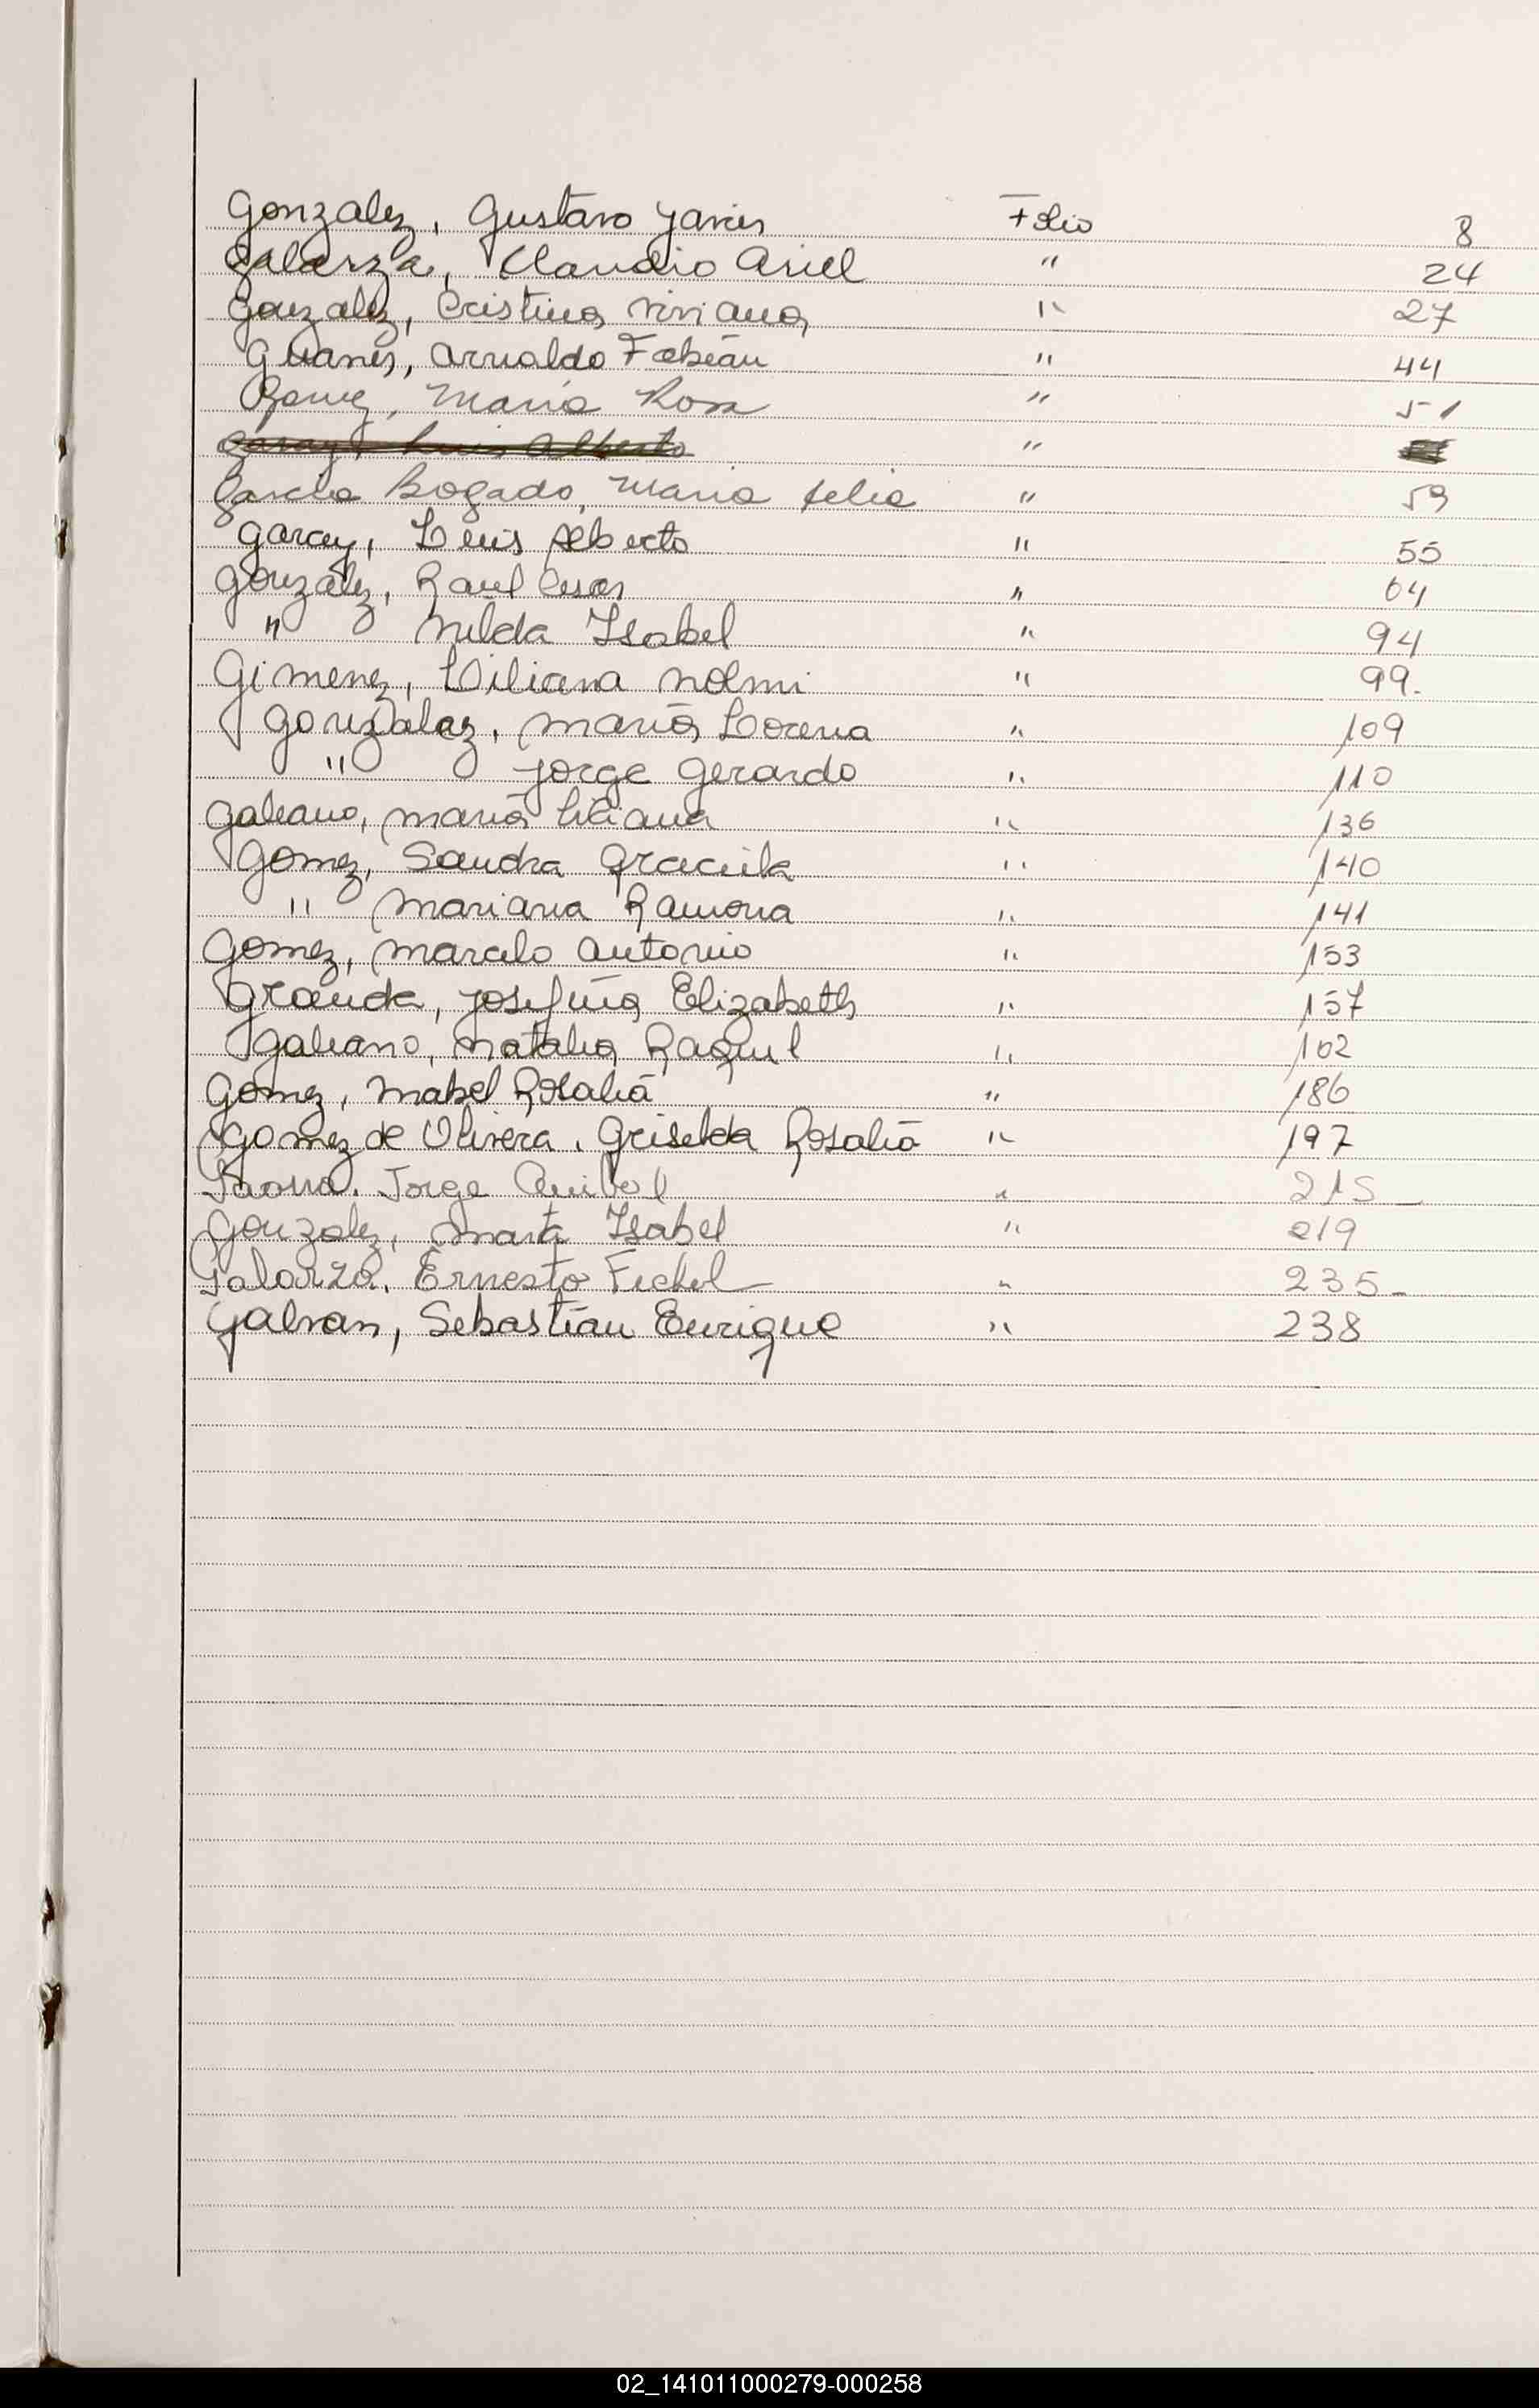 Gonzalez, Gustavo Javier Folio 8
Galarza, Claudio Ariel " 24
Gonzalez, Cristina Viviana " 27
Guanes, Arnaldo Fabián " 44
Gomez, Maria Rosa " 51
Garay, Luis Alberto "
Garcia Bogado, Maria Celia " 53
Garay, Luis Alberto " 55
González, Raul Cesar " 64
" Nelda Isabel " 94
Gimenez, Liliana Noemi " 99.
Gonzalez, María Lorena " 109
" Jorge Gerardo " 110
Galeano, María Liliana " 136
Gomez, Sandra Graciela " 140
" Mariana Ramona " 141
Gomez, Marcelo Antonio " 153
Granda, Josefina Elizabeth " 157
Galeano, Natalia Raquel " 162
Gomez, Mabel Rosalía " 186
Gomez de Olivera, Griselda Rosalía " 197
Jorge Anibal " 215
Gonzalez, Marta Isabel " 219
Galarza, Ernesto Fidel " 235
Galvan, Sebastián Enrique " 238
02_141011000279-000258